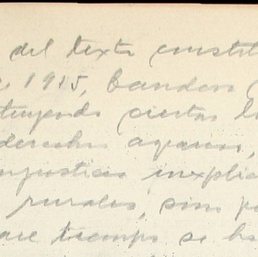 del texto constit
1915, bandera
tuyendo ciertas
derechos agrarios,
injusticias inexplic
rurales, sino p
tiempo se ha